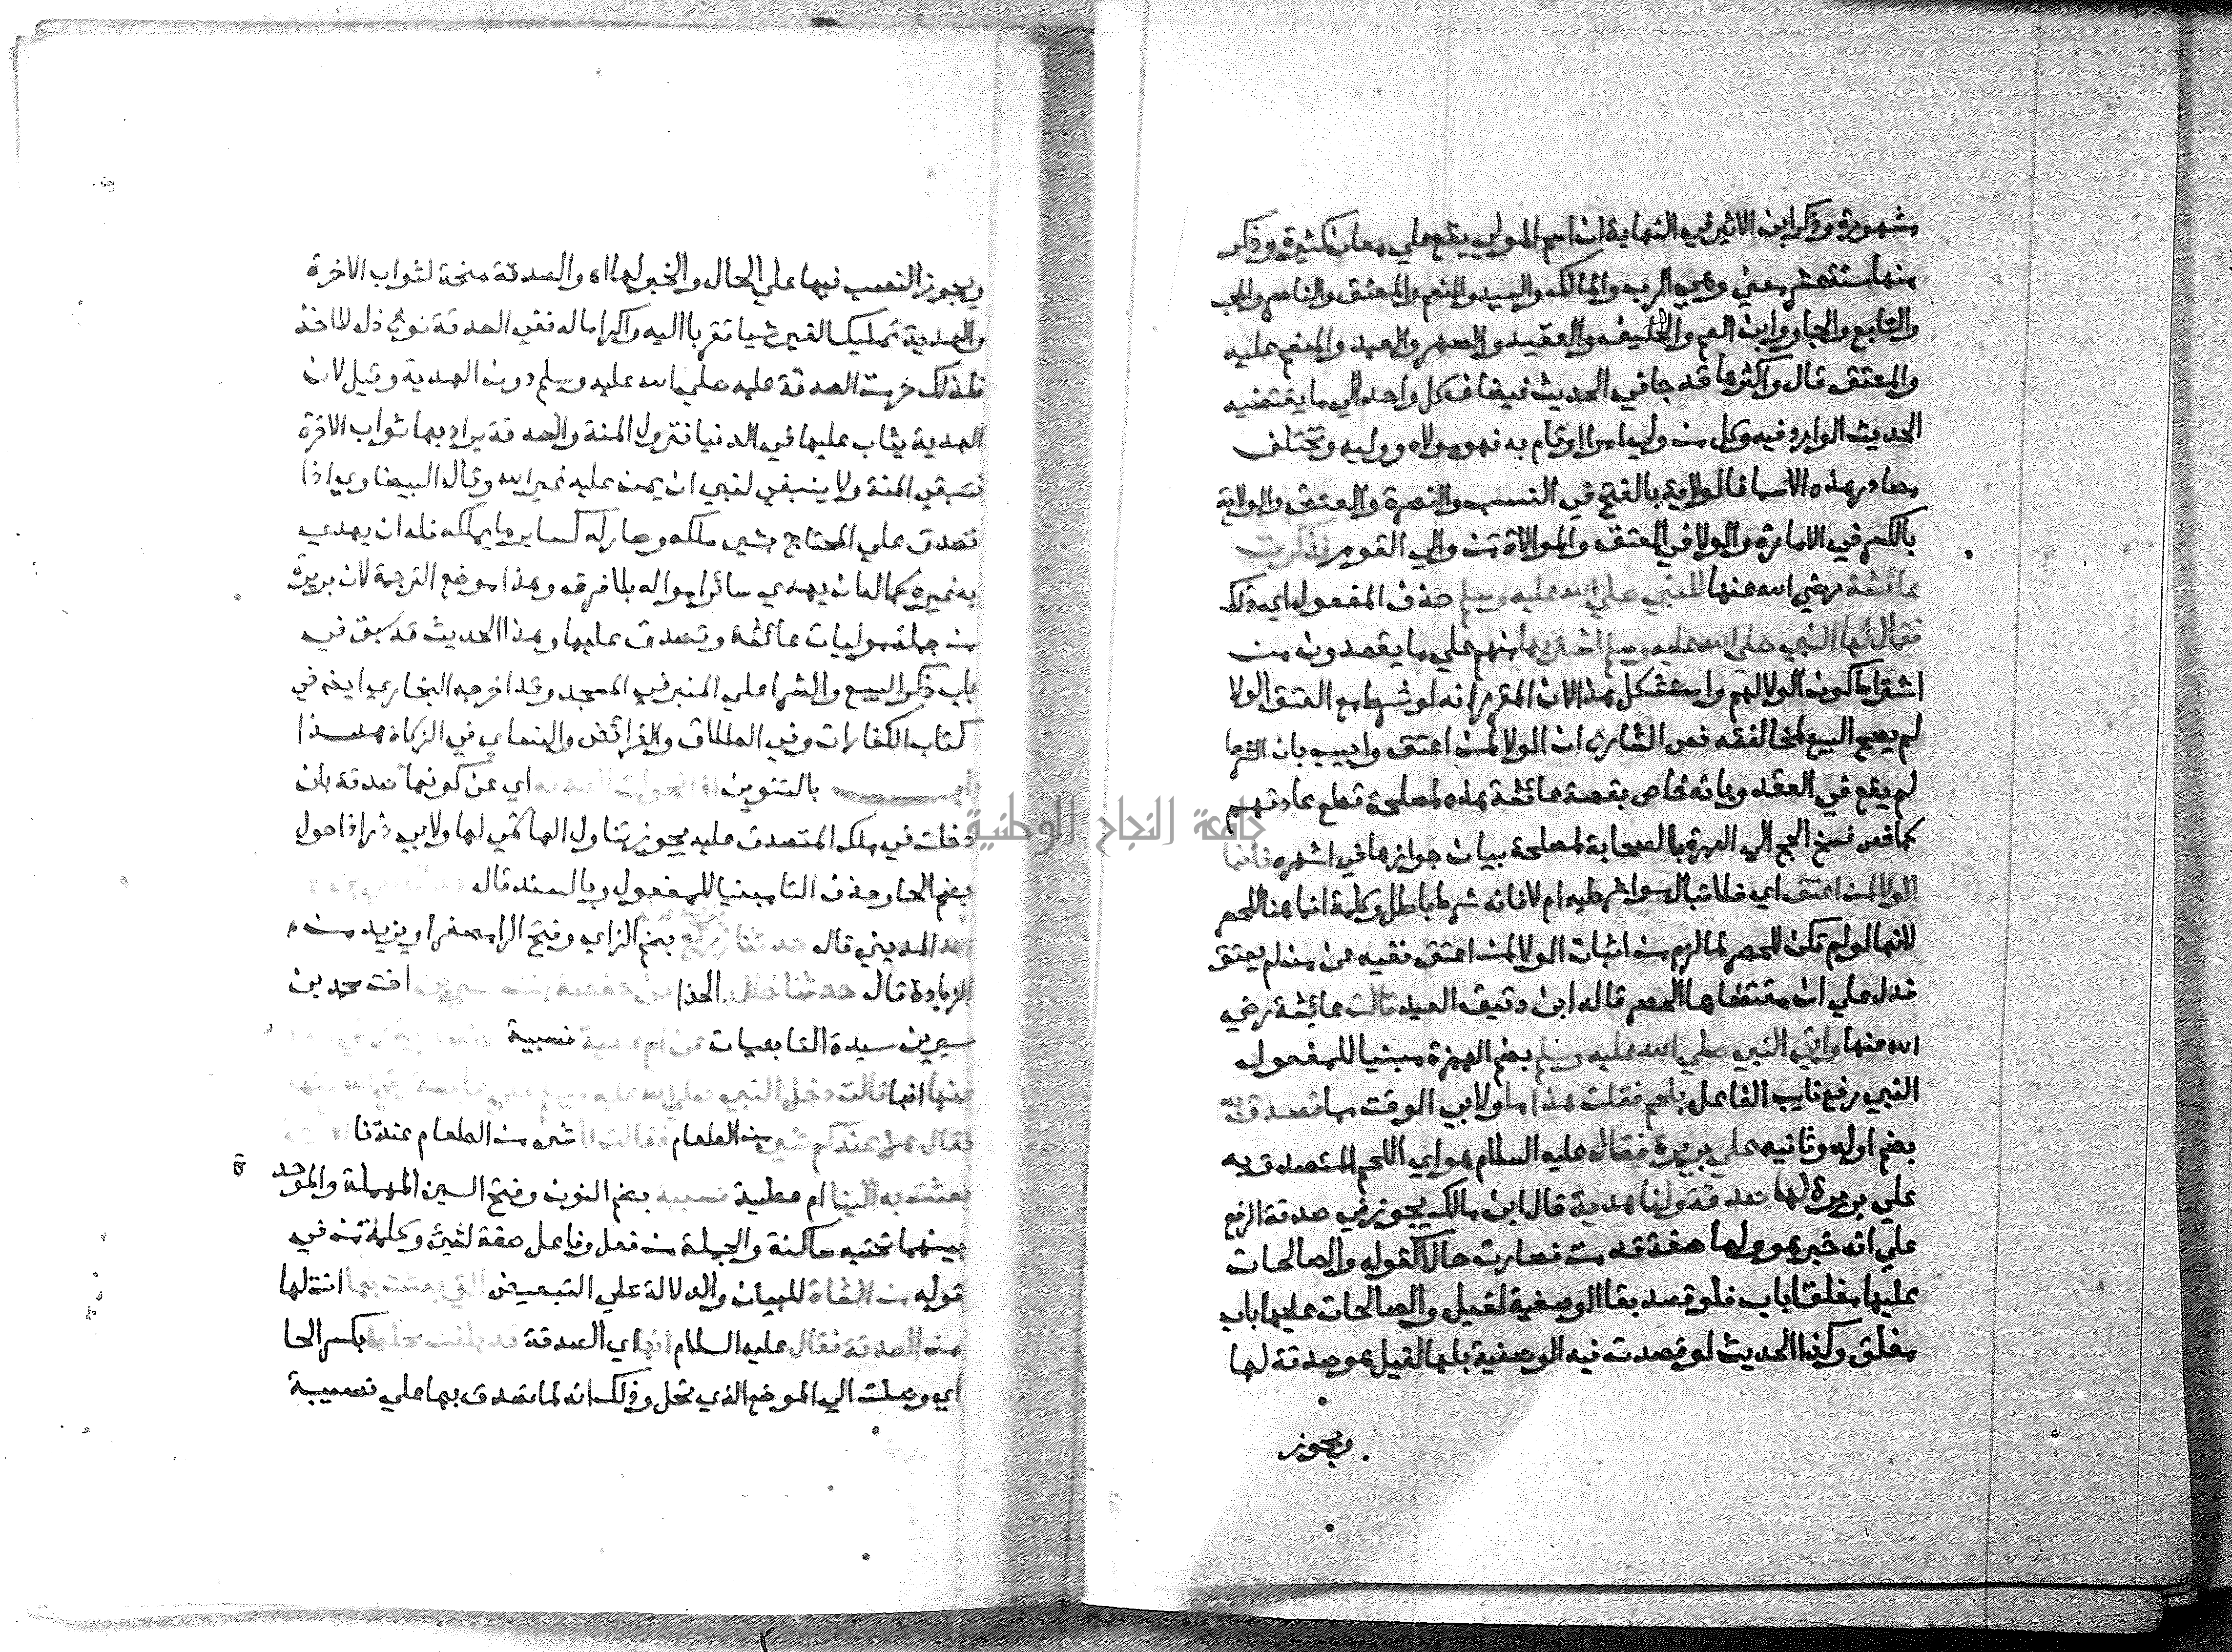 مشهورة وذكر ابن الاثير في النهاية ان اسم المولي يقع علي معان كثيرة وذكر
منها ستة عشر معني وهي الرب والمالك والسيد والمنعم والمعتق والناصر والمحب
والتابع والجار وابن العم والحليف والعقيد والصهر والعبد والمنعم عليه
والمعتق قال واكثرها قد جا في الحديث فيضاف كل واحد الي ما يقتضيه
الحديث الوارد فيه وكل من ولي امرا او قام به فهو مولاه ووليه وتختلف
مصادر هذه الاسما فالولاية بالفتح في النسب والنصرة والعتق والولاية
بالكسر في الامارة والولا في المعتق والموالاة من والي القوم فذكرت
عائشة رضي الله عنها للنبي صلي الله عليه وسلم حذف المفعول اي ذلك
فقال لها النبي صلي الله عليه وسلم اشتريها منهم علي ما يقصدون من
اشتراط كون الولا لهم واستشكل هذا لان المقرر انه لو شرط مع العتق الولا
لم يصح البيع لمخالفته نص الشارع ان الولا لمن اعتق واجيب بان الشرط
لم يقع في العقد وبانه خاص بقصة عائشة هذه لمصلحة قطع عادتهم
كما خص فسخ الحج الي العمرة بالصحابة لمصلحة بيان جوازها في اشهره فانما
الولا لمن اعتق اي فلا تبال سوا شرطيه ام لا فانه شرط باطل وكلمة انما هنا للحصر
لانها لو لم تكن للحصر لما لزم من اثبات الولا لمن اعتق نفيه عن من لم يعتق
فدل علي ان مقتضاها الحصر قاله ابن دقيق العيد قالت عائشة رضي
الله عنها واتي النبي صلي الله عليه وسلم بضم الهمزة مبنيا للمفعول
النبي رفع نايب الفاعل بلحم فقلت هذا ما ولابي الوقت مما تصدق به
بضم اوله وثانيه علي بريرة فقال عليه السلام هو اي اللحم المتصدق به
علي بريرة لها صدقة ولنا هدية قال ابن مالك يجوز في صدقة الرفع
علي انه خبر هو ولها صفة قدمت فصارت حالا كقوله والصالحات
عليها مغلقا باب فلو قصد بقا الوصفية لقيل والصالحات عليها باب
مغلق وكذا الحديث لو قصدت فيه الوصفية بلها لقيل هو صدقة لها
ويجوز
ويجوز النصب فيها علي الحال والخبر لها اه والصدقة منحة لثواب الاخرة
والهدية تمليك الغير شيا تقربا اليه واكراما له ففي الصدقة نوع ذل للاخذ
فلذلك حرمت الصدقة عليه صلي الله عليه وسلم دون الهدية وقيل لان
الهدية يثاب عليها في الدنيا فتزول المنة والصدقة يراد بها ثواب الاخرة
فتبقي المنة ولا ينبغي لنبي ان يمن عليه غير الله وقال البيضاوي اذا
تصدق علي المحتاج بشي ملكه وصار له كساير ما يملكه فله ان يهدي
به غيره كما له ان يهدي سائر امواله بلا فرق وهذا موضع الترجمة لان بريرة
من جملة موليات عائشة وتصدق عليها وهذا الحديث قد سبق في
باب ذكر البيع والشرا علي المنبر في المسجد وقد اخرجه البخاري ايضا في
كتاب الكفارات وفي الطلاق والفرائض والنساي في الزكاة هذا
باب بالتنوين اذا تحولت الصدقة اي عن كونها صدقة بان
دخلت في ملك المتصدق عليه يجوز تناول الهاشمي لها ولابي ذر اذا حول
بضم الحا وحذف التا مبنيا للمفعول وبالسند قال
المديني قال حدثنا يزيد بن زريع بضم الزاي وفتح الرا مصغرا ويزيد من
الزيادة قال حدثنا خالد الحذا اخت محمد بن
سيرين سيدة التابعيات عن ام عطية نسيبة
عنها انها قالت دخل النبي صلي الله عليه وسلم
فقال هل عندكم شي من الطعام فقالت لا شي من الطعام عندنا
بعثت به الينا ام عطية نسيبة بضم النون وفتح السين المهملة والموحدة
بينهما تحتيه ساكنة والجملة من فعل وفاعل صفة لشي وكلمة من في
قوله من الشاة للبيان والدلالة علي التبعيض التي بعثت بها انت لها
من الصدقة فقال عليه السلام انها اي الصدقة قد بلغت محلها بكسر الحا
اي وصلت الي الموضع الذي تحل وذلك انه لما تصدق بها علي نسيبة
جامعة النجاح الوطنية